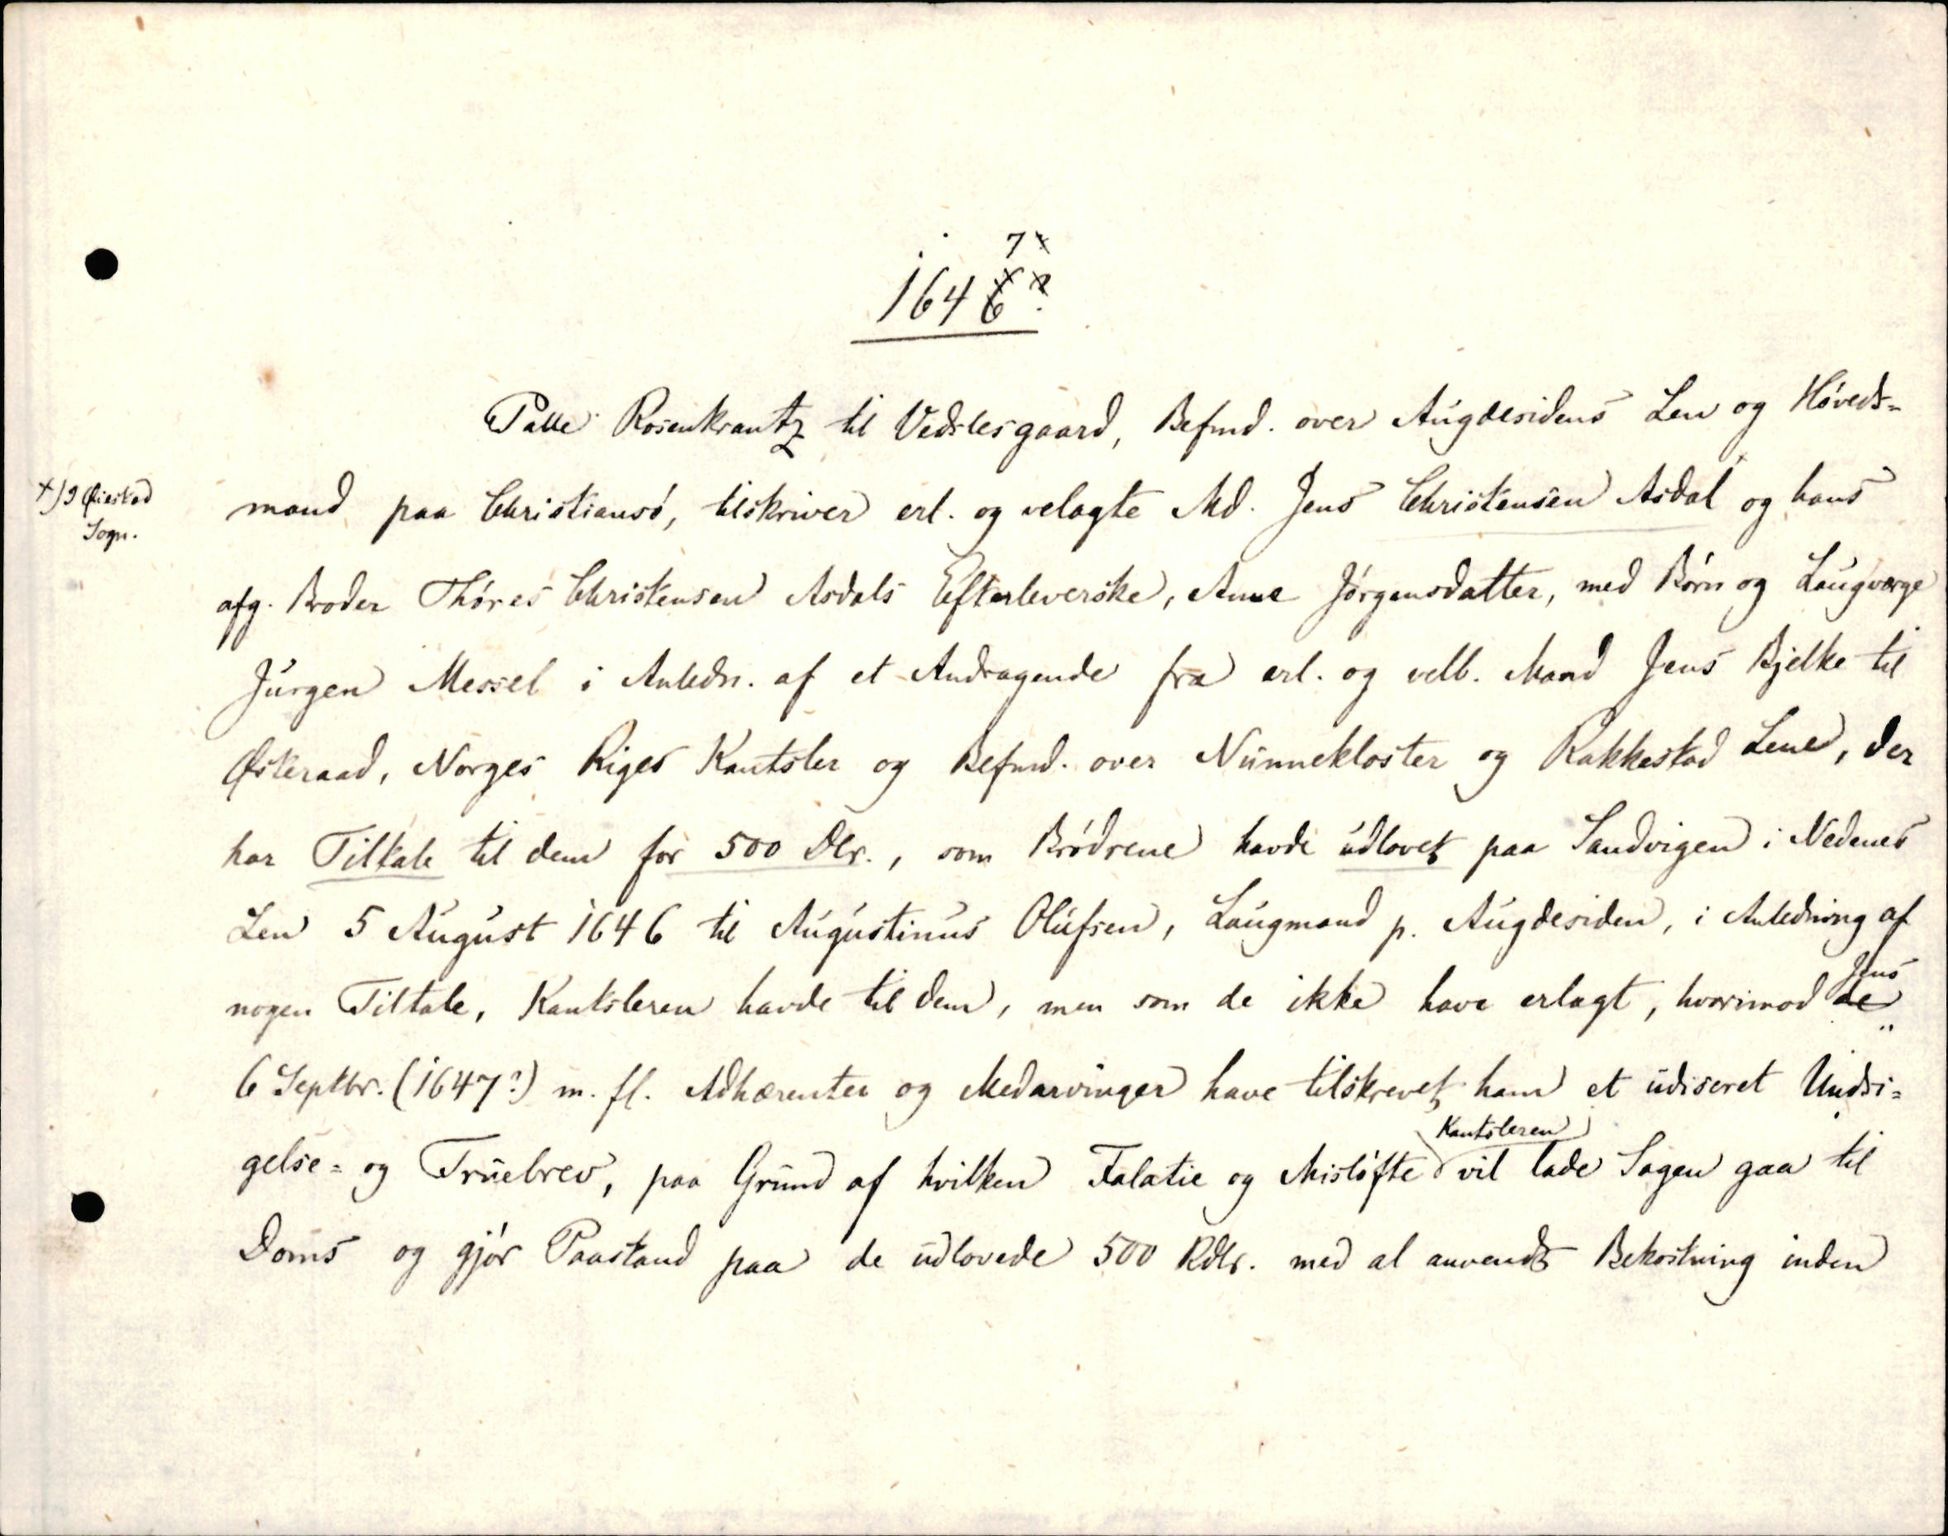 7
1646?
Palle Rosenkrantz til Vedslesgaard, Befmd. over Augdesidens Len og Høveds-
mand paa Christiansø, tilskriver erl. og velagte Md. Jens Christensen Asdal x og hans
x) I Øiestad
Sogn.
afg. Broder Thøres Christensen Asdals Efterleverske, Anne Jørgensdatter, med Børn og Laugværge
Jürgen Messel i Anledn. af et Andragende fra erl. og velb. Mand Jens Bjelke til
Østeraad, Norges Riges Kantsler og Befmd. over Nunnekloster og Rakkestad Lene, der
har Tiltale til dem for 500 Dlr., som Brødrene havde udlovet paa Sandvigen i Nedenes
Len 5 August 1646 til Augustinus Olufsen, Laugmand p. Augdesiden, i Anledning af
nogen Tiltale, Kantsleren havde til dem, men som de ikke have erlagt, hvorimod de Jens
6 Septbr. (1647?) m. fl. Adhærenter og Medarvinger have tilskrevet ham et udiseret Undsi-
gelse- og Truebrev, paa Grund af hvilken Falatie og Misløfte Kantsleren vil lade Sagen gaa til
Doms og gjør Paastand paa de udlovede 500 Rdlr. med al anvendt Bekostning inden